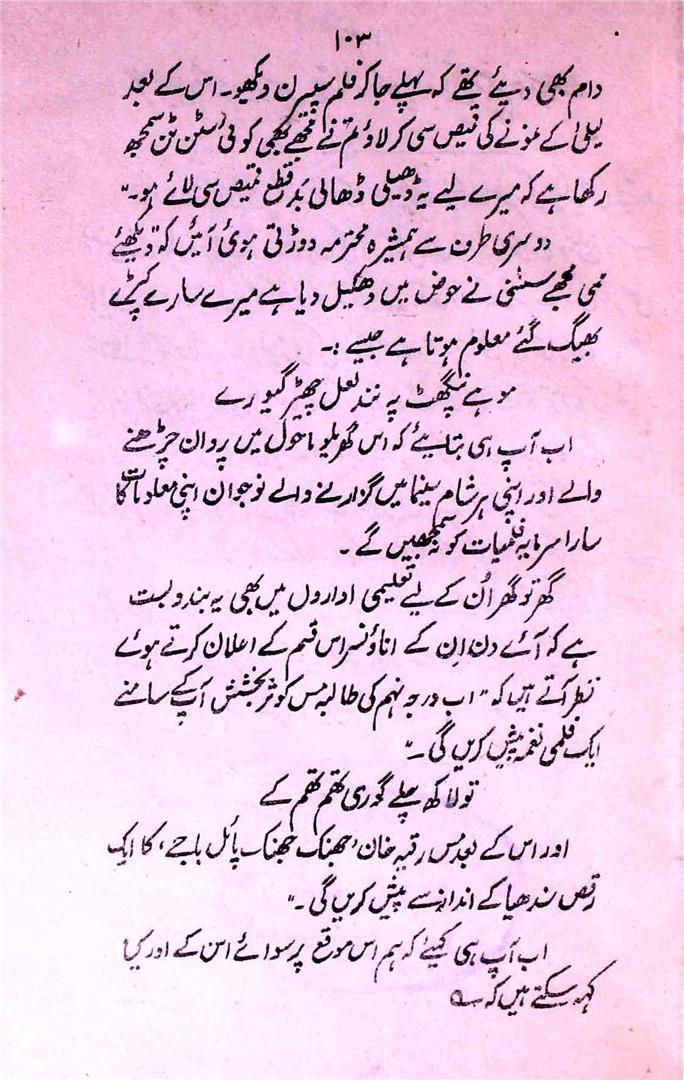 ۱۰۳
دام بھی دیئے تھے کہ پہلے جا کر فلم سپیرن دیکھو۔ اس کے بعد
لیلیٰ کے نمونے کی قمیص سی کر لاؤ تم نے مجھے بھی کوئی ٹن ٹن سمجھ
رکھا ہے کہ میرے لیے یہ ڈھیلی ڈھالی بد قطع قمیص سی لائے ہو۔"
دوسری طرف سے ہمشیرہ محترمہ دوڑتی ہوئی آئیں کہ "دیکھئے
ممی مجھے سنتی نے حوض میں دھکیل دیا ہے میرے سارے کپڑے
بھیگ گئے معلوم ہوتا ہے جیسے :۔
موہے پنگھٹ پہ نند لعل چھیڑ گیو رے
اب آپ ہی بتایئے کہ اس گھریلو ماحول میں پروان چڑھنے
والے اور اپنی ہر شام سینما میں گزارنے والے نوجوان اپنی معلومات کا
سارا سرمایہ فلمیات کو نہ سمجھیں گے ۔
گھر تو گھر اُن کے لیے تعلیمی اداروں میں بھی یہ بندوبست
ہے کہ آئے دن ان کے اناؤنسر اس قسم کے اعلان کرتے ہوئے
نظر آتے ہیں کہ " اب درجہ نہم کی طالبہ مس کوثر بخشش آپ کے سامنے
ایک فلمی نغمہ پیش کریں گی ۔"
تو لاکھ چلے گوری تھم تھم کے
اور اس کے بعد مس رقیہ خان 'جھنک جھنک پائل باجے' کا ایک
رقص سندھیا کے انداز سے پیش کریں گی ۔"
اب آپ ہی کہیئے کہ ہم اس موقع پر سوائے اس کے اور کیا
کہہ سکتے ہیں کہ ؎